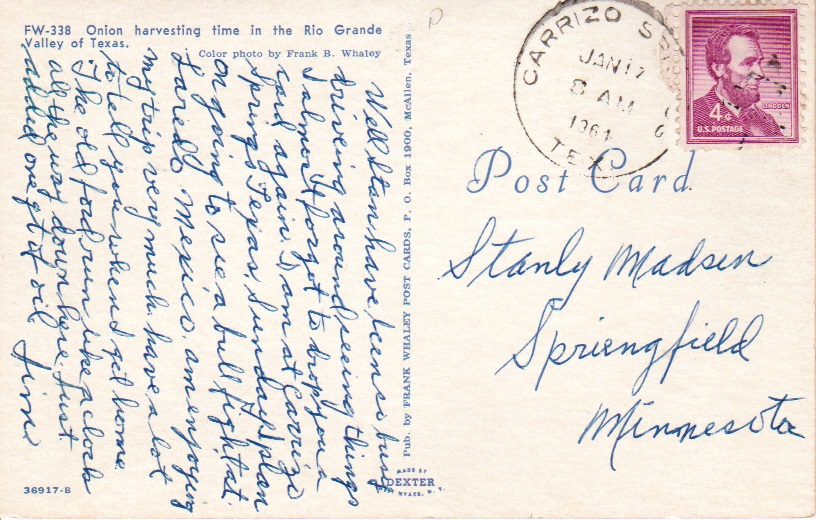 FW-338 Onion harvesting time in the Rio Grande
Valley of Texas.
Color photo by Frank B. Whaley
Well Stan have been so busy
driveing around seeing things
I almost forgot to drop you a
card again. I am at Carrizo
Springs Texas. Sunday I plan
on going to see a bull fight at
Laredo Mexico. am enjoying
my trip very much. have a lot
to tell you when I get home
The old ford run like a clock
all the way down here. Just
added one qt of oil Jim
36917-B
Pub. by FRANK WHALEY POST CARDS, P. O. Box 1900, McAllen, Texas
MADE BY
DEXTER
WEST NYACK, N. Y.
CARRIZO SPR
JAN 17
8 AM
1961
TEX.
4¢
LINCOLN
U.S. POSTAGE
Post Card
Stanly Madsen
Spriengfield
Minnesota